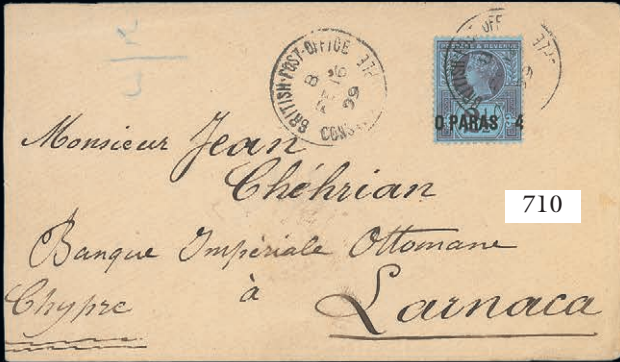 BRITISH·POST·OFFICE
8
99
CONS
POSTAGE & REVENUE
0 PARAS 4
710
Monsieur Jean
Chéhrian
Banque Impériale Ottomane
à
Chypre
Larnaca